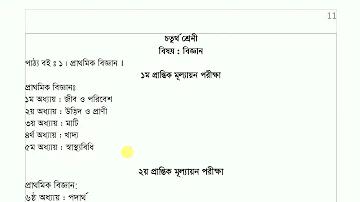 11
চতুর্থ শ্রেনী
বিষয় : বিজ্ঞান
পাঠ্য বই ঃ ১। প্রাথমিক বিজ্ঞান ।
১ম প্রান্তিক মূল্যায়ন পরীক্ষা
প্রাথমিক বিজ্ঞানঃ
১ম অধ্যায় : জীব ও পরিবেশ
২য় অধ্যায় : উদ্ভিদ ও প্রাণী
৩য় অধ্যায় : মাটি
৪র্থ অধ্যায় : খাদ্য
৫ম অধ্যায় : স্বাস্থ্যবিধি
২য় প্রান্তিক মূল্যায়ন পরীক্ষা
প্রাথমিক বিজ্ঞান:
৬ষ্ঠ অধ্যায় : পদার্থ